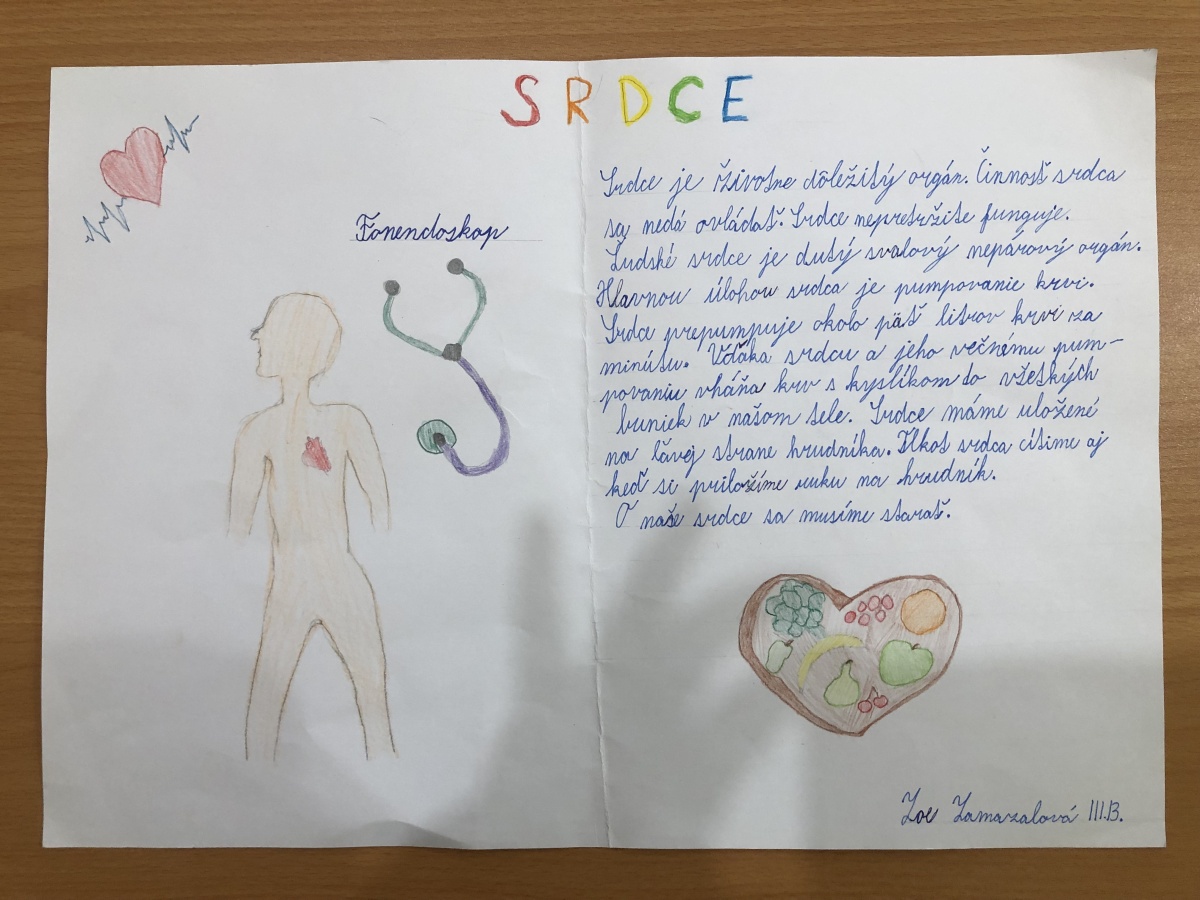 SRDCE
Fonendoskop
Srdce je životne dôležitý orgán. Činnosť srdca
sa nedá ovládať. Srdce nepretržite funguje.
Ľudské srdce je dutý svalový nepárový orgán.
Hlavnou úlohou srdca je pumpovanie krvi.
Srdce prepumpuje okolo päť litrov krvi za
minútu. Vďaka srdcu a jeho večnému pum-
povaniu vháňa krv s kyslíkom do všetkých
buniek v našom tele. Srdce máme uložené
na ľavej strane hrudníka. Tlkot srdca cítime aj
keď si priložíme ruku na hrudník.
O naše srdce sa musíme starať.
Zoe Zamazalová III.B.